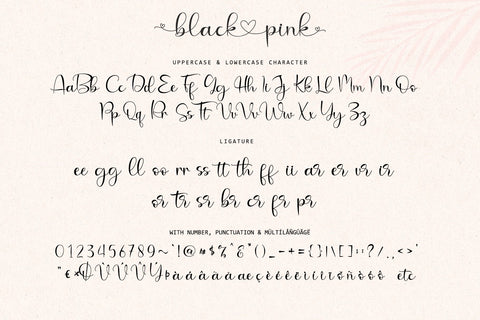 black♡pink
UPPERCASE & LOWERCASE CHARACTER
AaBb Cc Dd Ee Ff Gg Hh Ii Jj Kk Ll Mm Nn Oo
Pp Qq Rr Ss Tt Uu Vv Ww Xx Yy Zz
LIGATURE
ee gg ll oo rr ss tt th ff ii ar er vr ir
or tr sr br cr fr pr
WITH NUMBER, PUNCTUATION & MULTILÃNGÜÀGE
0123456789~`!@#$%^&*()_-+={}|\[]:;?/.,<>'
etc